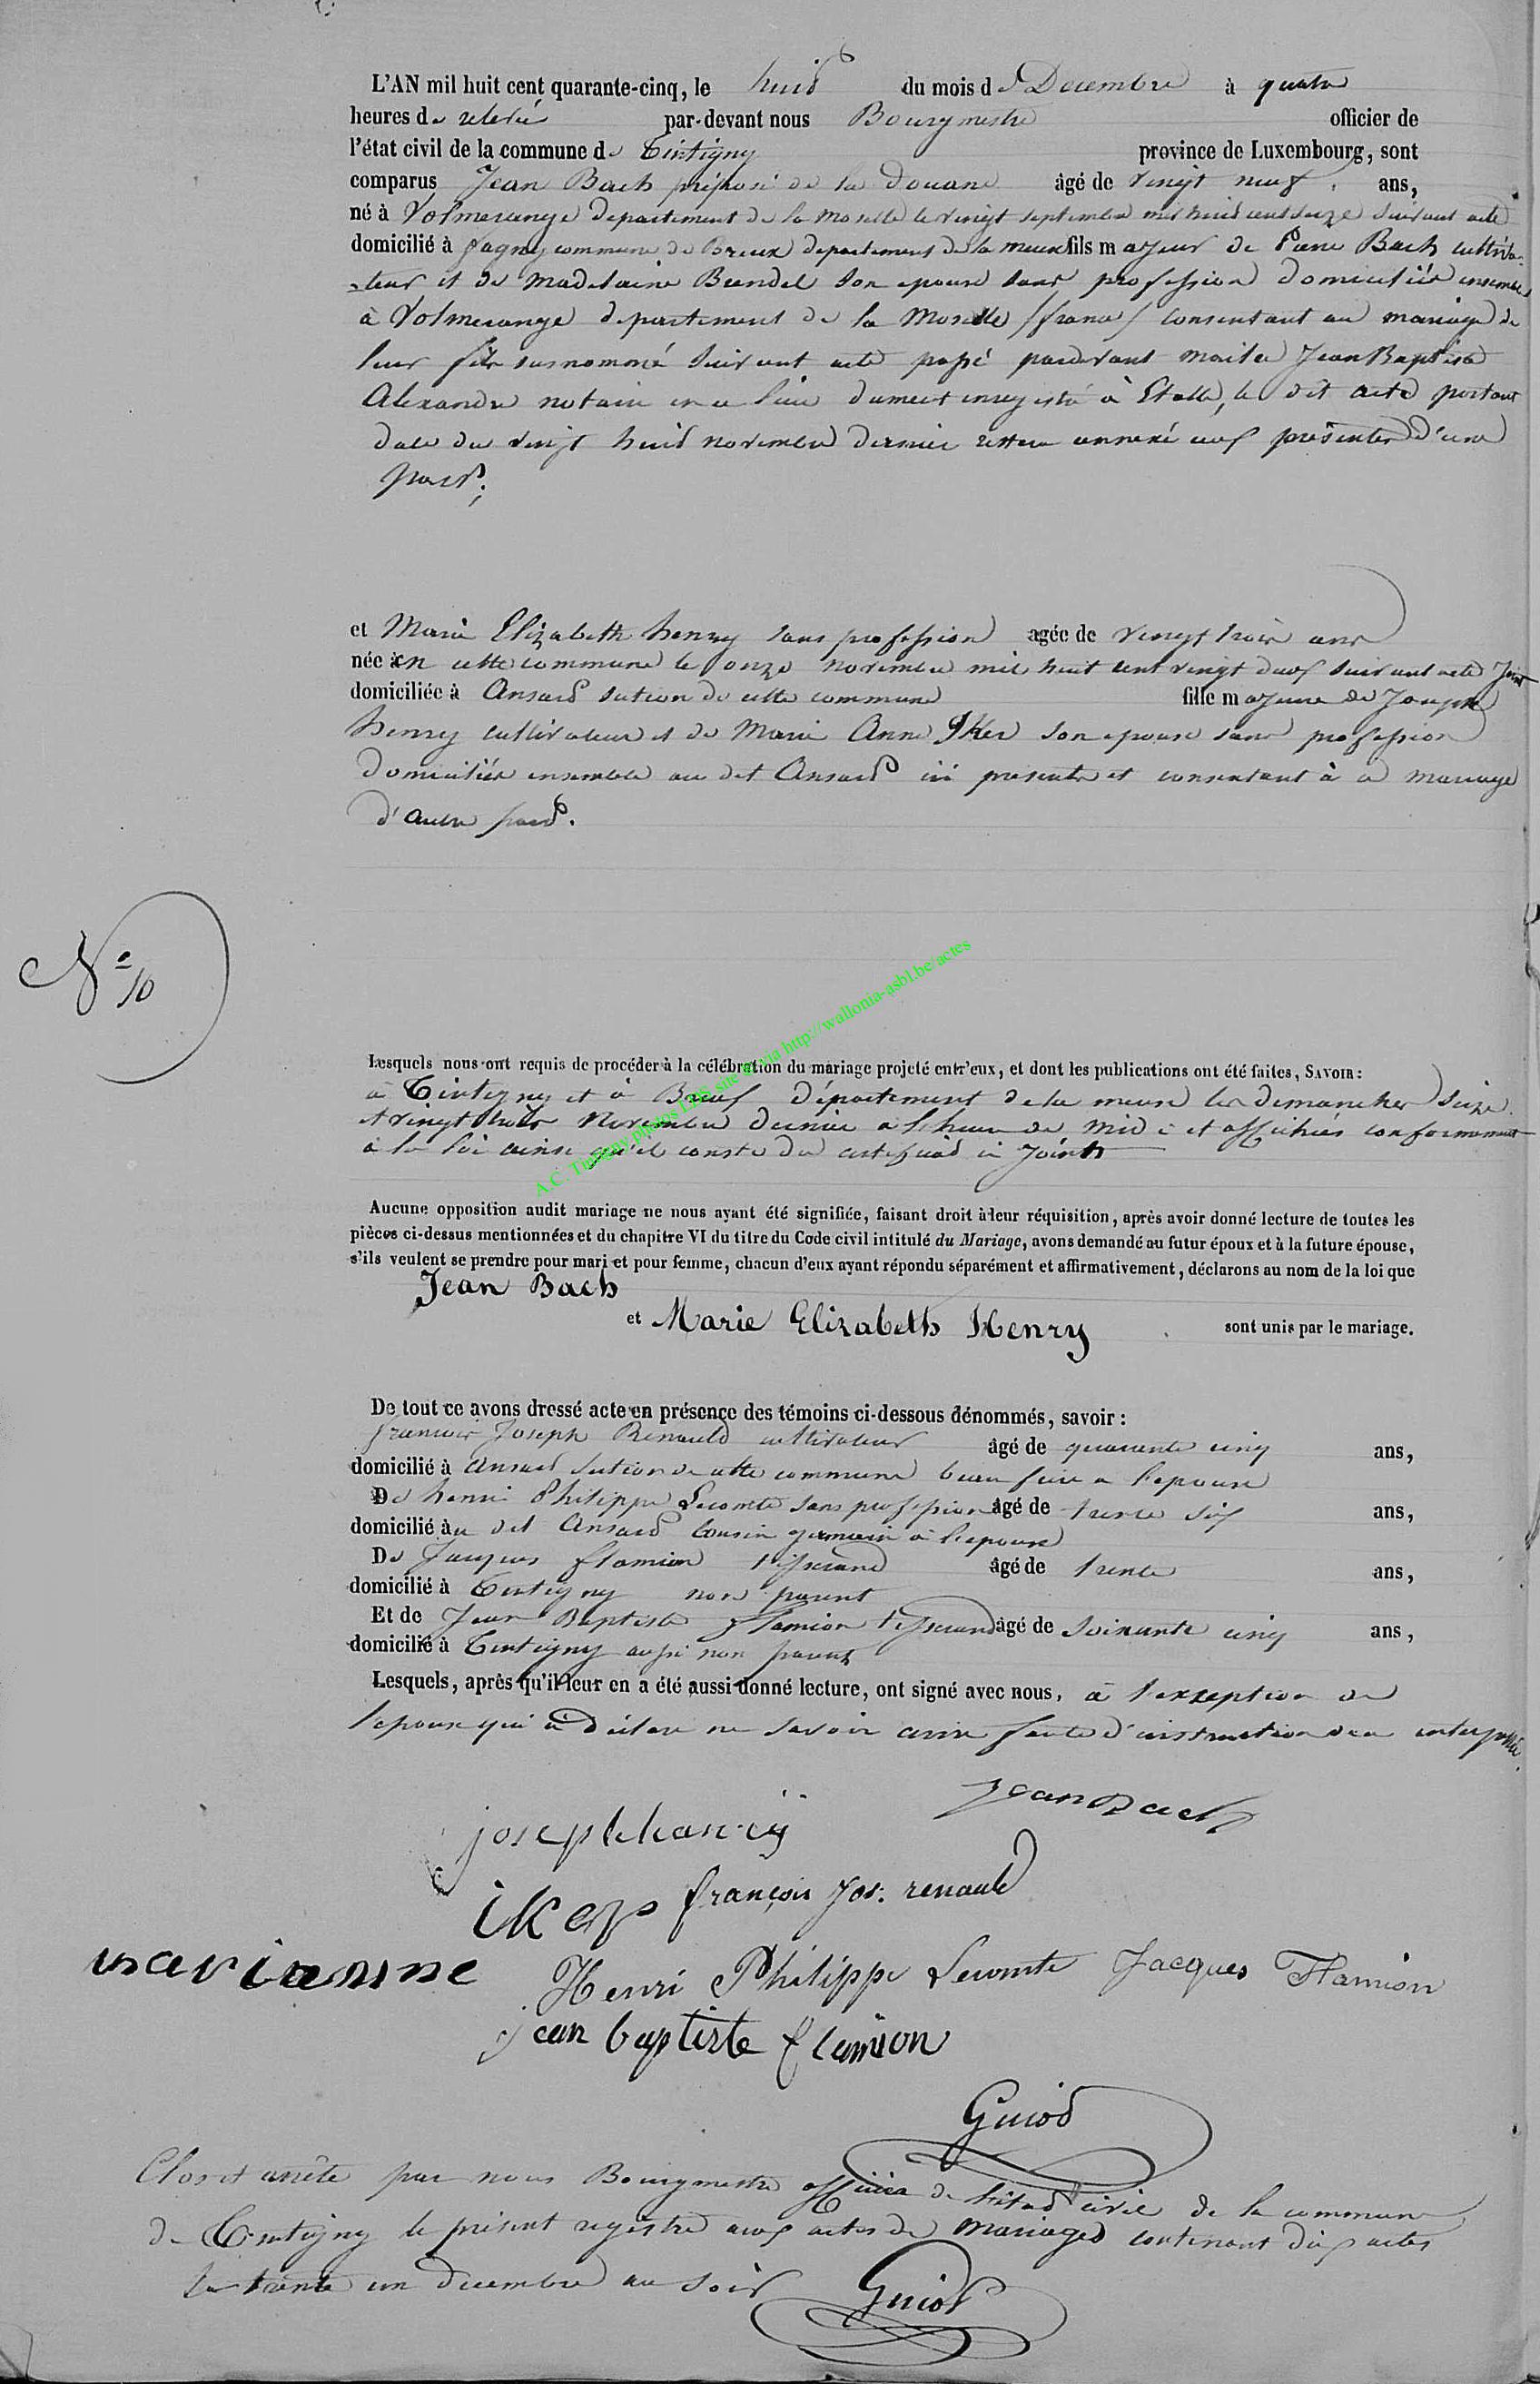 L'AN mil huit cent quarante-cinq, le huit du mois de Decembre à quatre
heures de relevée par-devant nous Bourgmestre officier de
l'état civil de la commune de Tintigny province de Luxembourg, sont
comparus Jean Bach préposé de la douane âgé de vingt neuf ans,
né à Volmerange departement de la moselle le vingt septembre mil huit cent seize suivant acte
domicilié à fagny commune de Breux departement de la meuse fils majeur de Pierre Bach cultiva-
-teur et de Madelaine Bendel son epouse sans profession domiciliés ensemble
à Volmerange departement de la Moselle /france/ consentant au mariage de
leur fils susnommé suivant acte passé pardevant maitre Jean Baptiste
Alexandre notaire en ce lieu dument enregistré à Etalle, le dit acte portant
date du vingt huit novembre dernier restera annexé aux présentes d'une
part;
et Marie Elizabeth henry sans profession agée de vingt trois ans
née à en cette commune le onze novembre mil huit cent vingt deux suivant acte joint
domiciliée à Ansart section de cette commune fille majeure de Joseph
henry cultivateur et de Marie Anne Iker son epouse sans profession
domiciliés ensemble au dit Ansart ici presents et consentant à ce mariage
d'autre part.
No 10
Lesquels nous ont requis de procéder à la célébration du mariage projeté entr'eux, et dont les publications ont été faites, SAVOIR:
à Tintigny et à Breux département de la meuse les dimanches seize
et vingt trois Novembre dernier a l'heure de midi et affichées conformement
à la loi ainsi qu'il conste du certificat ci joint
A.C. Tintigny photos LDS site @ via http://wallonia-asbl.be/actes
Aucune opposition audit mariage ne nous ayant été signifiée, faisant droit à leur réquisition, après avoir donné lecture de toutes les
pièces ci-dessus mentionnées et du chapitre VI du titre du Code civil intitulé du Mariage, avons demandé au futur époux et à la future épouse,
s'ils veulent se prendre pour mari et pour femme, chacun d'eux ayant répondu séparément et affirmativement, déclarons au nom de la loi que
Jean Bach
et Marie Elizabeth Henry sont unis par le mariage.
De tout ce avons dressé acte en présence des témoins ci-dessous dénommés, savoir:
francois Joseph Renauld cultivateur âgé de quarante cinq ans,
domicilié à Ansart section de cette commune beau frère a l'epouse
De henri Philippe Lecomte sans profession âgé de trente six ans,
domicilié au dit Ansart cousin germain à l'epouse
De Jacques flamion tisserand âgé de trente ans,
domicilié à Tintigny non parent
Et de Jean Baptiste flamion tisserand âgé de soixante cinq ans,
domicilié à Tintigny aussi non parent
Lesquels, après qu'il leur en a été aussi donné lecture, ont signé avec nous, à l'exception de
l'epouse qui à déclaré ne savoir ecrire faute d'instruction de ce interpellée.
Jean Bach
joseph henrij
iker françois Jos. renauld
marianne Henri Philippe Lecomte Jacques Flamion
jean baptiste flamion
Guiot
Clos et arrêté par nous Bourgmestre officier de l'état civil de la commune
de Tintigny le présent registre aux actes de Mariages contenant dix actes
le trente un decembre au soir Guiot